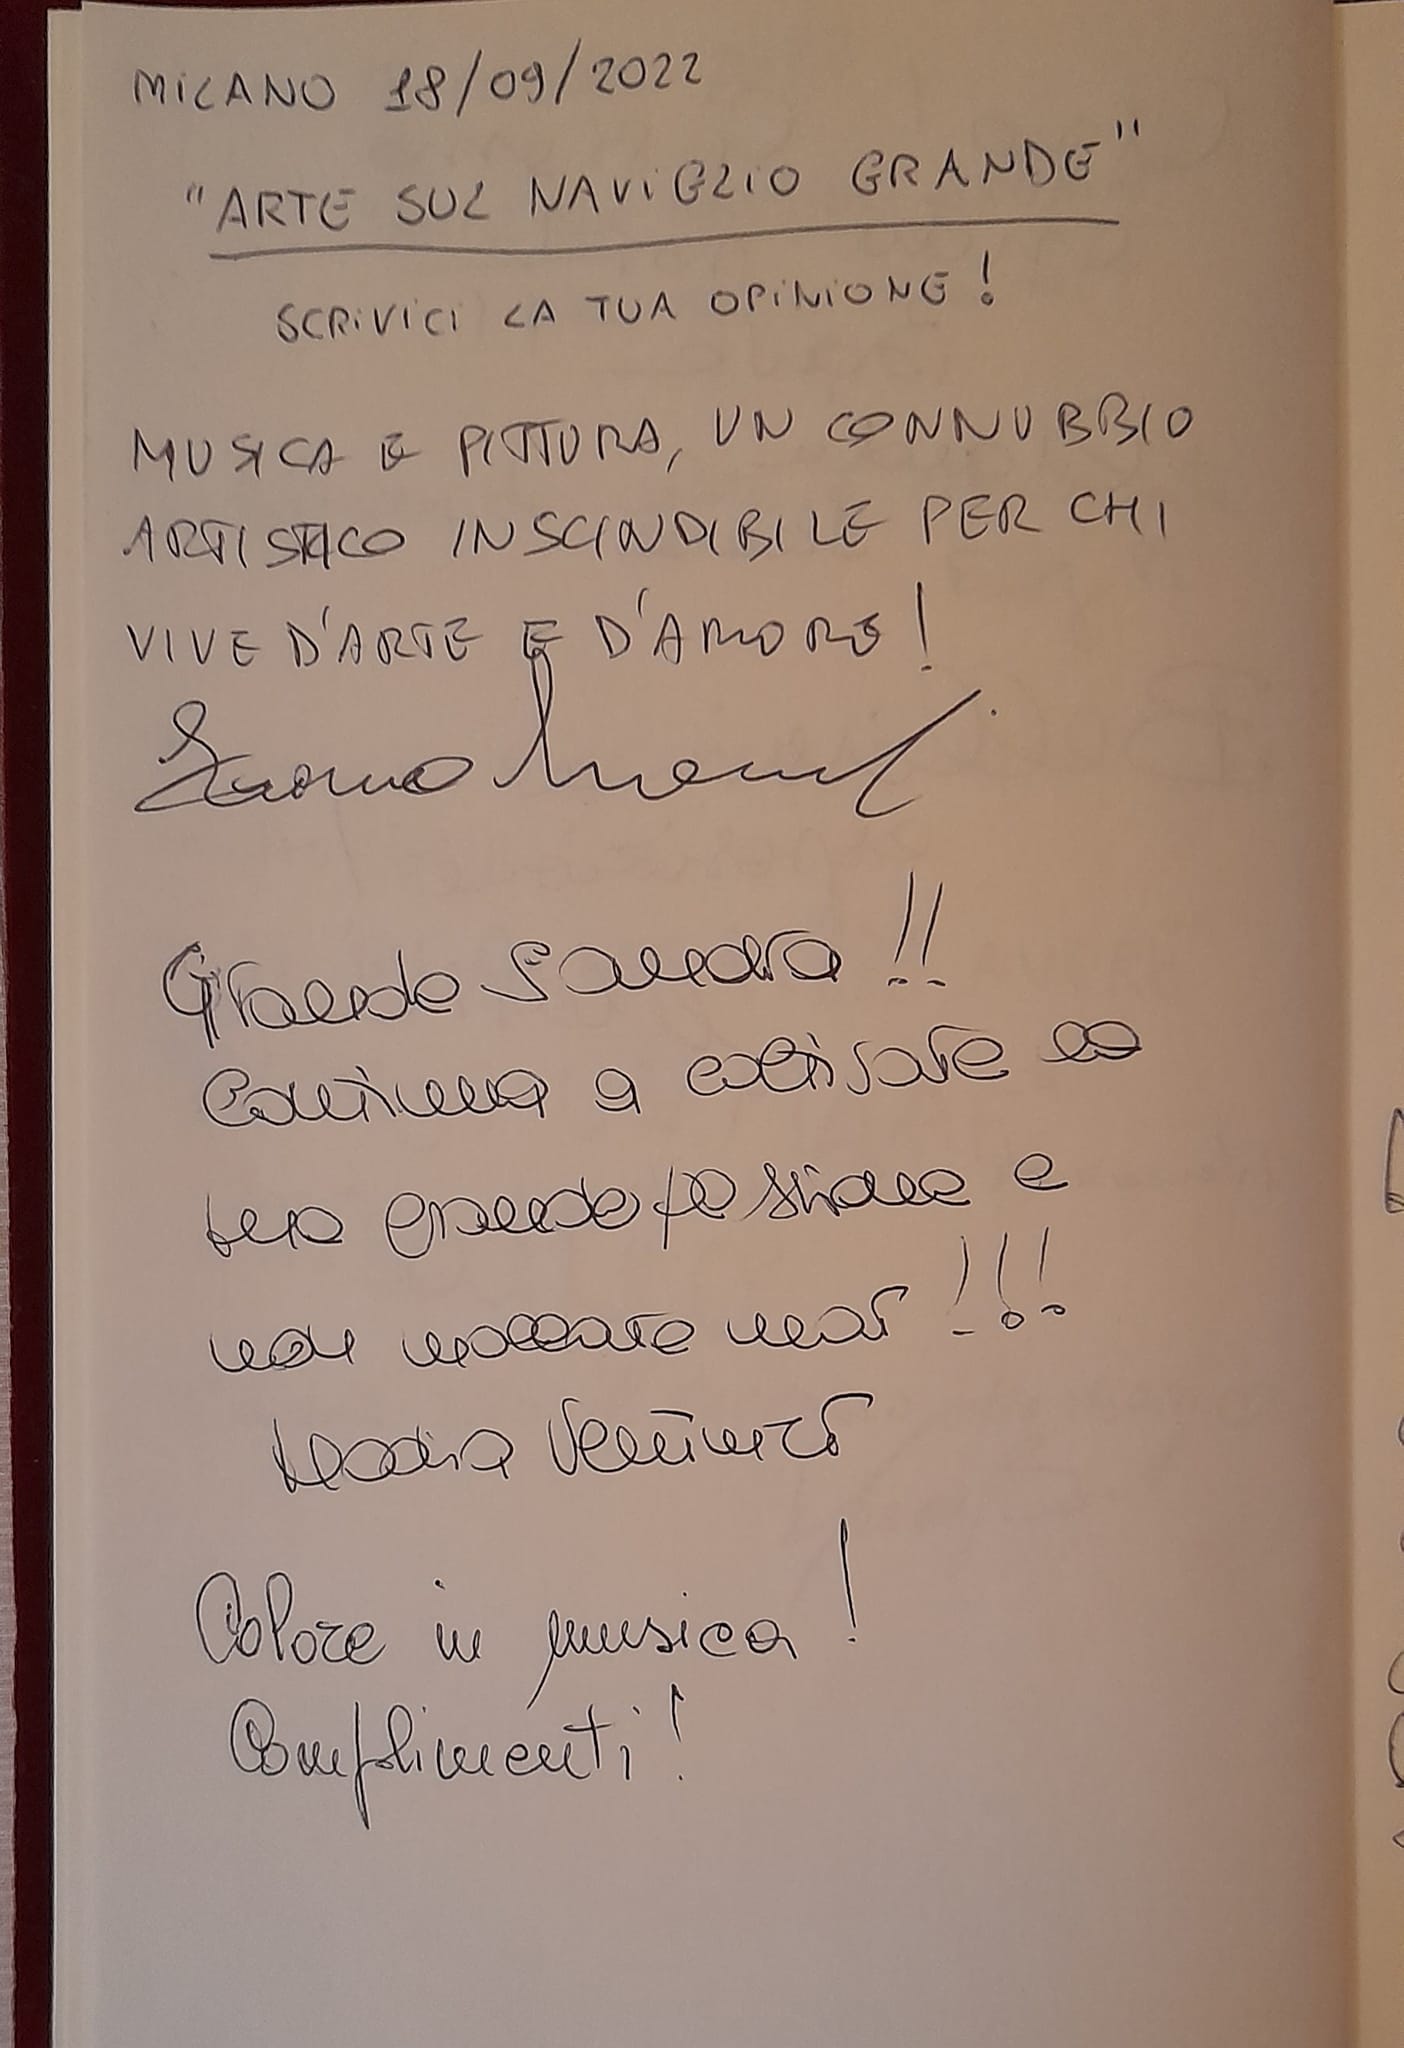 MILANO 18/09/2022
"ARTE SUL NAVIGLIO GRANDE"
SCRIVICI LA TUA OPINIONE!
MUSICA E PITTURA, UN CONNUBBIO
ARTISTICO INSCINDIBILE PER CHI
VIVE D'ARTE E D'AMORE!
Grande Sandra!!
Continua a coltivare la
tua grande passione e
non mollare mai!!!
Venturi
Colore in musica!
Complimenti!